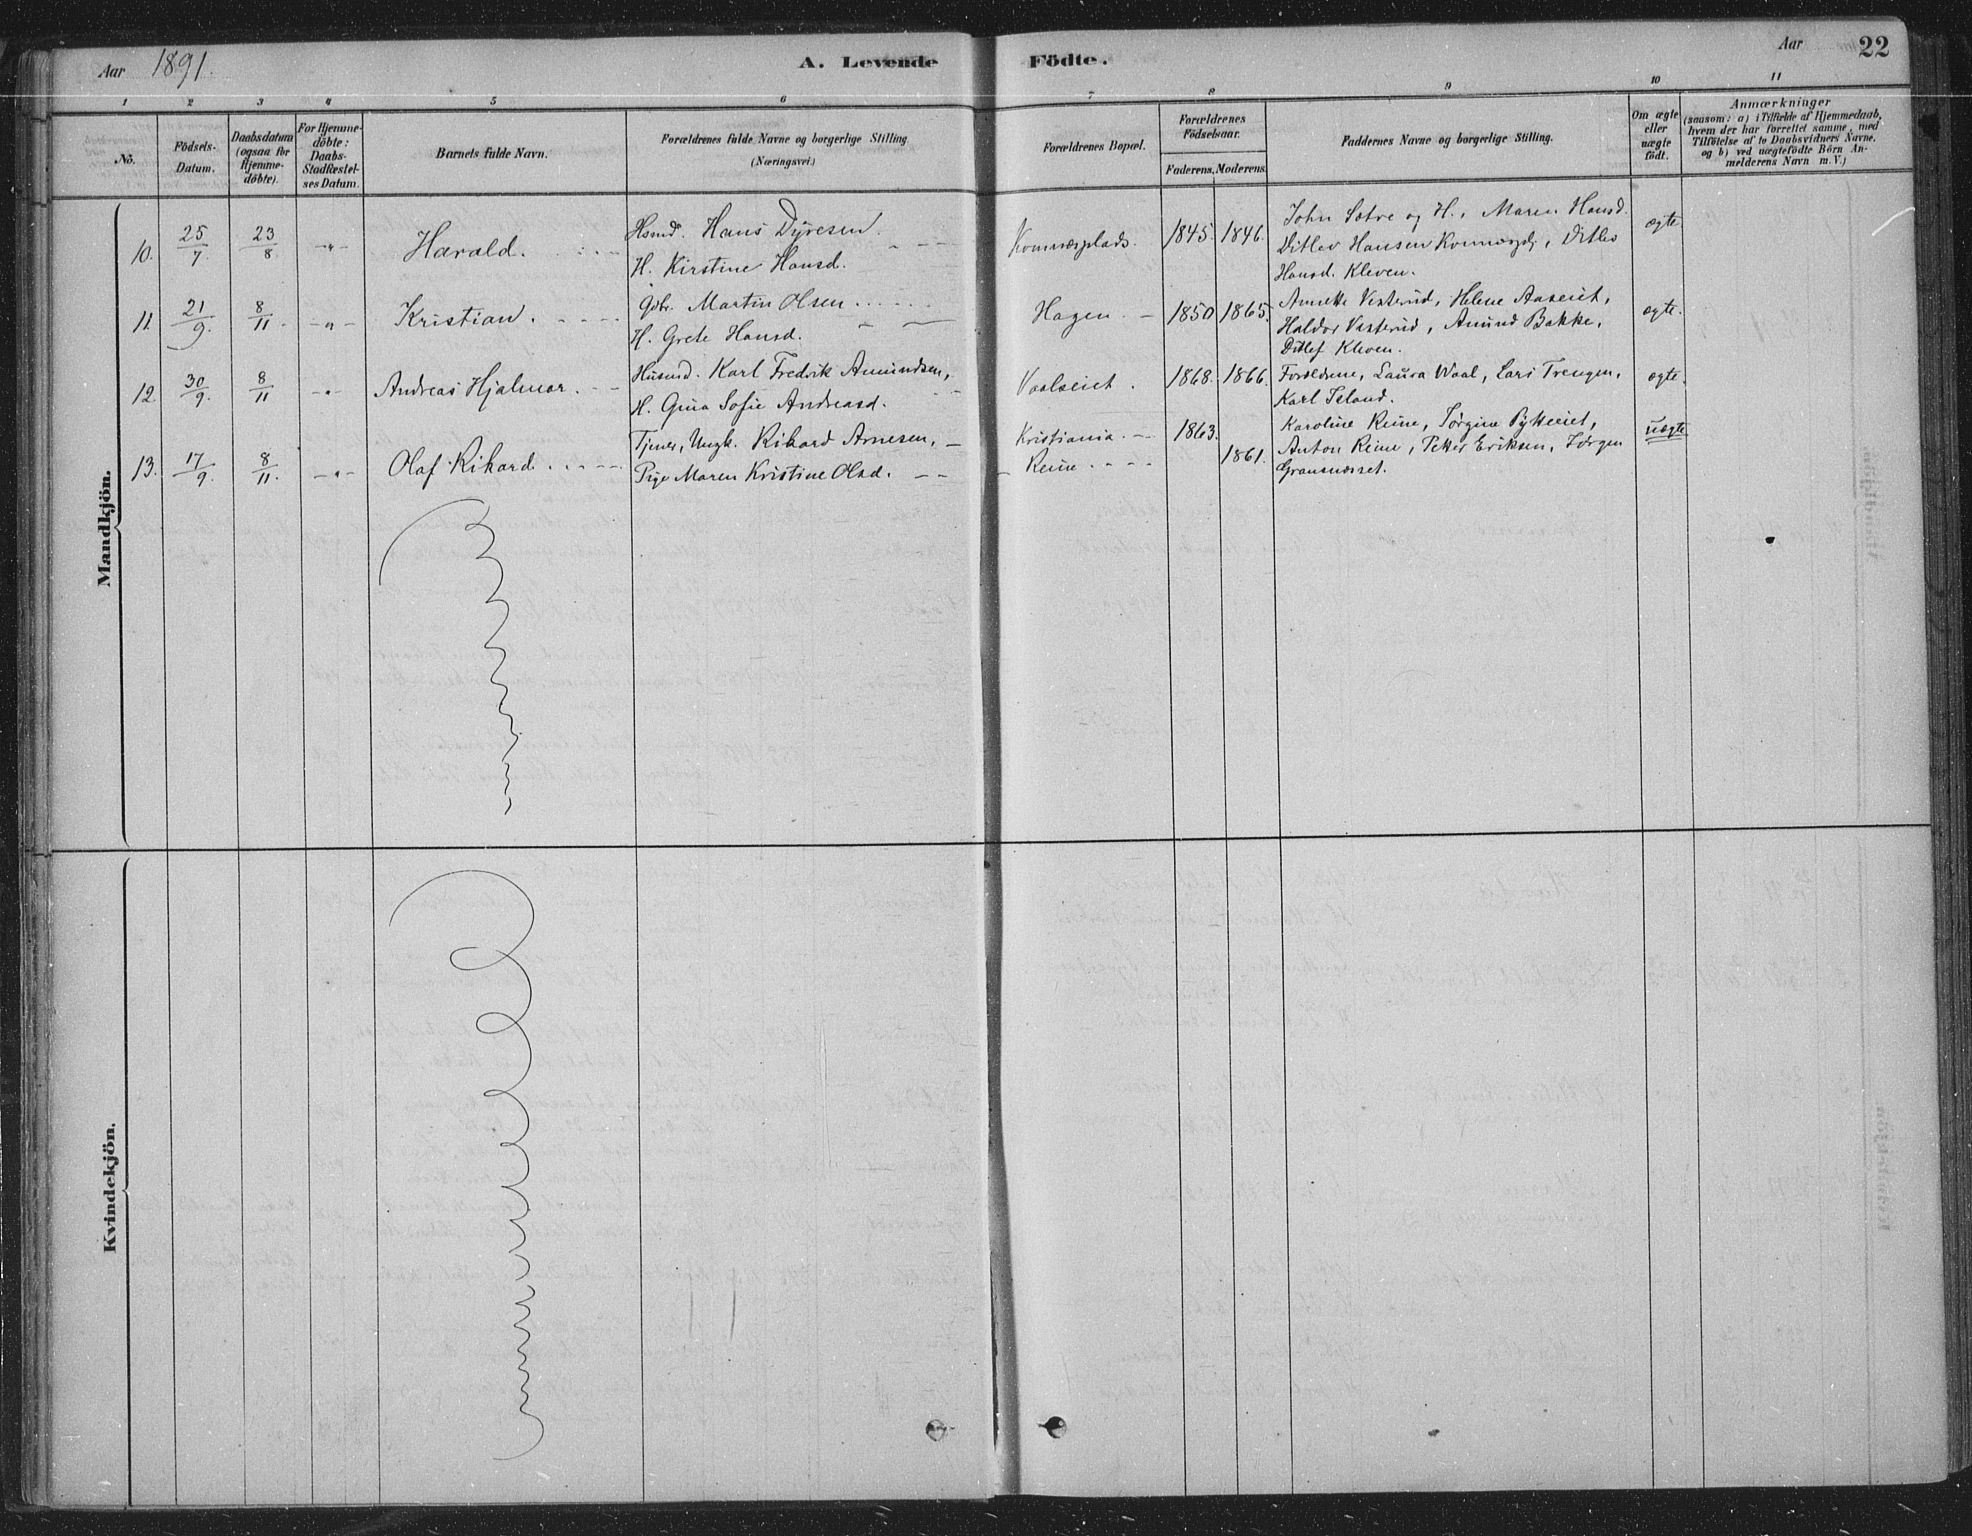 Aar 1891. A. Levende Födte. Aar 22
1 2 3 4 5 6 7 8 9 10 11
No.
Födsels-
Datum.
Daabsdatum
(ogsaa for
Hjemme-
döbte).
For Hjemme-
döbte:
Daabs-
Stadfæstel-
ses Datum.
Barnets fulde Navn.
Forældrenes fulde Navne og borgerlige Stilling
(Næringsvei.)
Forældrenes Bopæl.
Forældrenes
Födselsaar.
Faderens. Moderens.
Faddernes Navne og borgerlige Stilling.
Om ægte
eller
uægte
födt.
Anmærkninger
(saasom: a) i Tilfælde af Hjemmedaab,
hvem der har forrettet samme, med
Tilföielse af to Daabsvidners Navne.
og b) ved uægtefödte Börn An-
melderens Navn m. V.)
Mandkjön.
10. 25/7. 23/8. -"- Harald.
Hsmd. Hans Dyresen.
H. Kirstine Hansd.
Komnæsplads. 1845. 1846.
John Sætre og H., Maren Hansd.
Ditlev Hansen Komnæspl., Ditlev
Hansd. Kleven.
ægte
11. 21/9. 8/11. -"- Kristian.
Gdbr. Martin Olsen
H. Grete Hansd.
Hagen. 1850 1865.
Annette Vesterud, Helene Aaseiet,
Haldor Vesterud, Amund Bakke,
Ditlef Kleven.
ægte.
12 30/9. 8/11 -"- Andreas Hjalmar.
Husmd. Karl Fredrik Amundsen,
H. Gina Sofie Andreasd.
Vaalseiet. 1868. 1866.
Forældrene, Laura Waal, Lars Trengen,
Karl Island.
ægte.
13. 17/9. 8/11. -"- Olaf Rikard.
Tjener, Ungk. Rikard Arnesen,
Pige Maren Kristine Olsd.
Kristiania. 1863.
Reine. 1861.
Karoline Reine, Jørgine Pytteeiet,
Anton Reine, Petter Eriksen, Jørgen
Gransnæsset.
uægte
Kvindekjön.